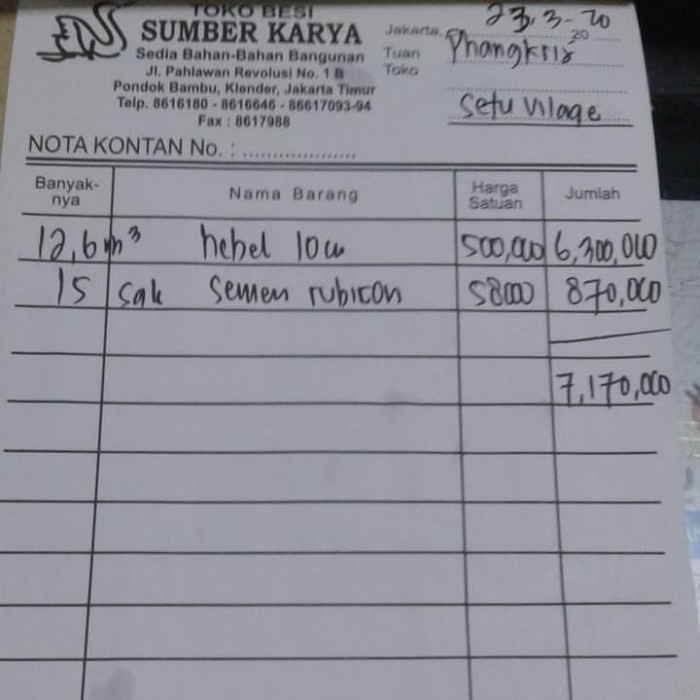 TOKO BESI
SUMBER KARYA
Sedia Bahan-Bahan Bangunan
Jl. Pahlawan Revolusi No. 1 B
Pondok Bambu, Klender, Jakarta Timur
Telp. 8616180 - 8616646 - 86617093-94
Fax : 8617988
Jakarta, 23.3-20 20
Tuan Phangkris
Toko
Setu Vilage
NOTA KONTAN No. : ....................
Banyak-nya Nama Barang Harga Satuan Jumlah
12,6 m³ hebel 10cm 500,000 6,300,000
15 sak semen rubicon 58000 870,000
7,170,000